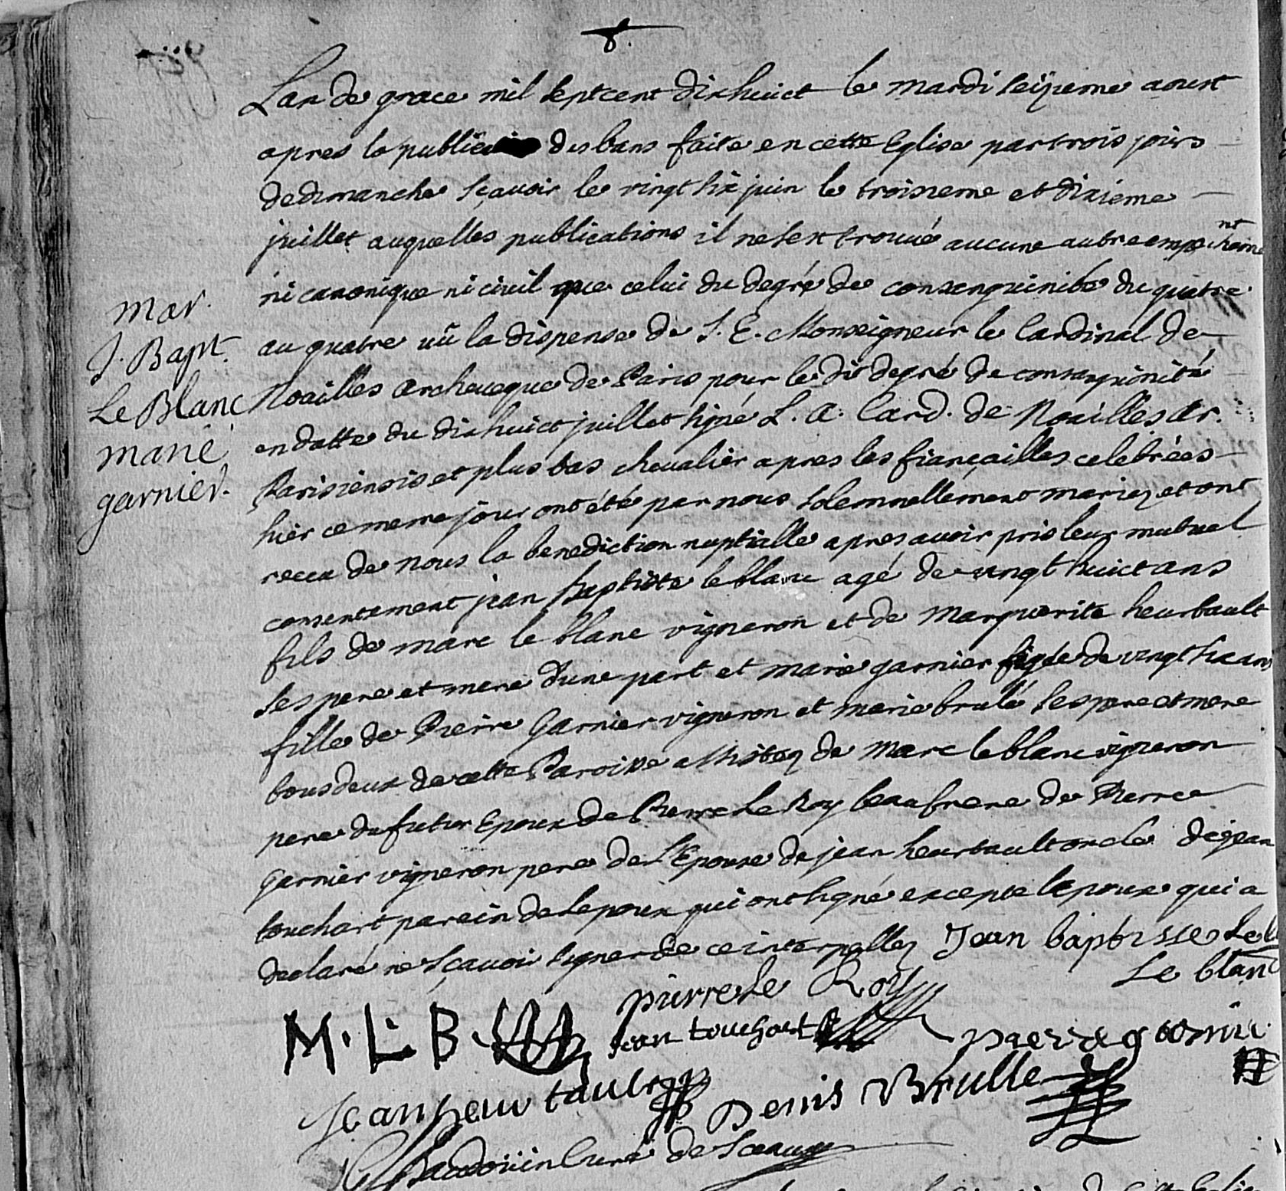 8.
Lan de grace mil septcent dixhuict le mardi seizieme aoust
apres la publication des bans faite en cette Eglise par trois jours
de dimanche sçavoir le vingt six juin le troisieme et dixieme
juillet auquelles publications il ne sest trouvé aucune autre empechemnt
ni canonique ni civil que celui du degré de consenguinité du quatre
au quatre vû la dispense de S. E. Monseigneur le Cardinal de
Noailles archeveque de Paris pour le dit degré de consanguinité
en datte du dixhuict juillet signé L. A. Card. de Noailles Ar.
Parisiensis et plus bas chevalier apres les fiançailles celebrées
hier ce meme jour ont été par nous solemnellement mariez et ont
receu de nous la benediction nuptialle apres avoir pris leur mutuel
consentement jean baptiste le blanc agé de vingt huict ans
fils de marc le blanc vigneron et de Marguerite heurtault
ses pere et mere d'une part et marie garnier agée de vingt six ans
fille de Pierre Garnier vigneron et marie brulé ses pere et mere
tous deux de cette Paroisse assistez de Marc le blanc vigneron
pere du futur Epoux de Pierre Le Roy beaufrere de Pierre
Garnier vigneron pere de l'Epouse de jean heurtault oncle de jean
touchart parein de lepoux qui ont signé excepté lepouse qui a
declaré ne sçavoir signer de ce interpellez Jean baptisse Le
Le blanc
mar.
J. Bapt.
Le Blanc
marie
garnier.
M. L. B.
pierre le Roy
jean touchart
pierre garnier
Jean heurtault
Denis Brulle
Baudoüin Curé de Sceaux